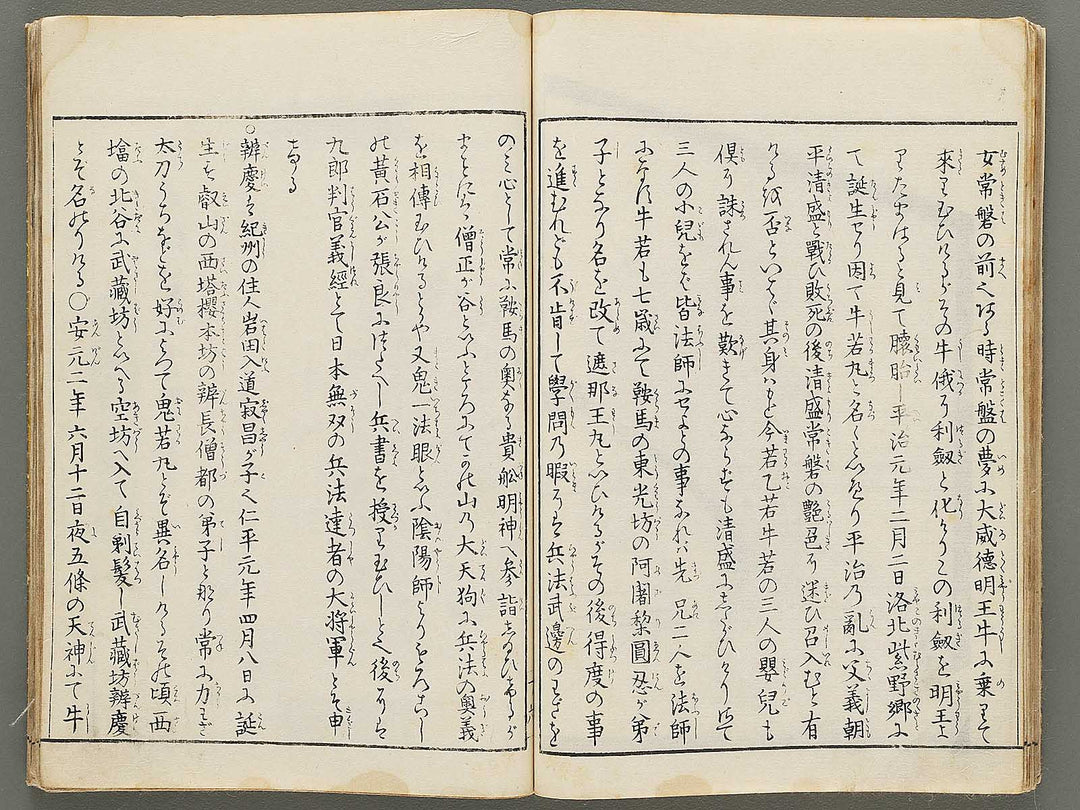 女常盤の前也ある時常盤の夢に大威徳明王牛に乗りて
来りたまひけるがその牛俄に利劔と化しこの利劔を明王よ
りたまはると見て懐胎し平治元年二月二日洛北紫野郷に
て誕生せり因て牛若丸と名く然るに平治乃亂に父義朝
平清盛と戰ひ敗死の後清盛常盤の艶色に迷ひ召入むと有
けるを否といはゞ其身はもと今若乙若牛若の三人の嬰兒も
倶に誅されん事を歎きて心ならずも清盛にしたがひけり
三人の小兒をば皆法師にせよとの事なれば先兄二人を法師
にし牛若も七歳にて鞍馬の東光坊の阿闍黎圓忍が弟
子となり名を改て遮那王丸といひけるがその後得度の事
を進むれども不肯して學問乃暇には兵法武邊のわざを
のミ心として常に鞍馬の奧なる貴舩明神へ参詣しける
まことにや僧正が谷といふところにてかの山乃大天狗に兵法の奧義
を相傳しけるとや又鬼一法眼といふ陰陽師よりもろこし
の黄石公が張良につたへし兵書を授りたまひしと也後には
九郎判官義經とて日本無双の兵法達者の大将軍とぞ申
ける
○辨慶は紀州の住人岩田入道寂昌が子也仁平元年四月八日に誕
生を叡山の西塔櫻本坊の辨長僧都の弟子と那り常に力わざ
太刀うちなどを好によつて鬼若丸とぞ異名しけるその頃西
塔の北谷に武藏坊といへる空坊へ入て自剃髪し武藏坊辨慶
とぞ名のりける○安元二年六月十二日夜五條の天神にて牛